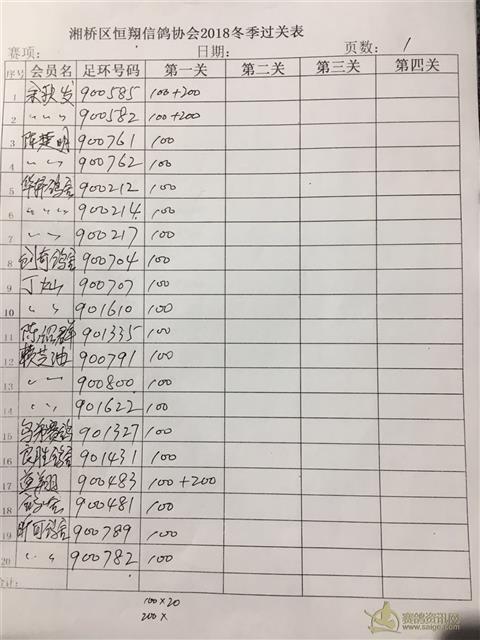 湘桥区恒翔信鸽协会2018冬季过关表
赛项: 日期: 页数: 1
序号 会员名 足环号码 第一关 第二关 第三关 第四关
1 900585 100+200
2 〃 〃 900582 100+200
3 陈楚明 900761 100
4 〃 〃 900762 100
5 华轩鸽舍 900212 100
6 〃 〃 900214 100
7 〃 〃 900217 100
8 鸽舍 900704 100
9 丁灿 900707 100
10 〃 〃 901610 100
11 陈绍群 901335 100
12 赖芝油 900791 100
13 〃 〃 900800 100
14 〃 〃 901622 100
15 901327 100
16 良胜鸽舍 901431 100
17 900483 100+200
18 900481 100
19 鸽舍 900789 100
20 〃 〃 900782 100
合计:
100×20
200×
赛鸽资讯网
www.saige.com